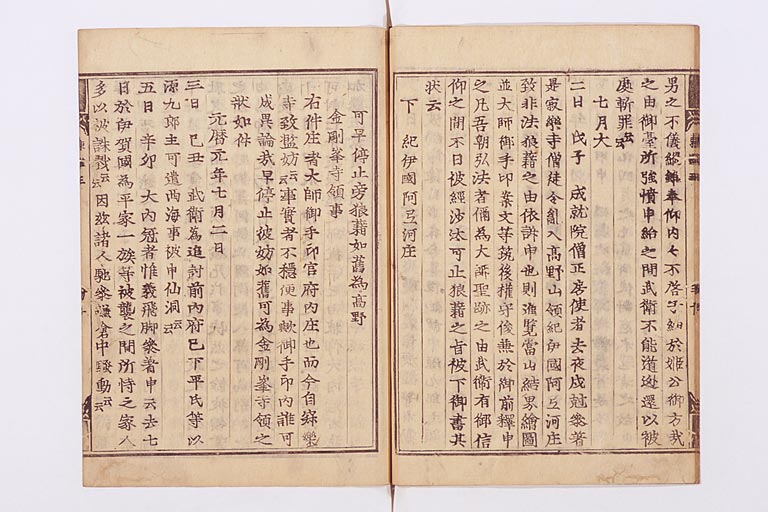 男之不儀縦雖奉仰内々不啓子細於姫公御方哉
之由御臺所強憤申給之間武衛不能遁逃還以被
處斬罪云云
七月大
二日戊子　成就院僧正房使者去夜戌尅參著
是寂樂寺僧徒令亂入高野山領紀伊國阿弖河庄
致非法狼藉之由依訴申也則進覽當山結界繪圖
並大師御手印案文等筑後權守俊兼於御前釋申
之凡吾朝弘法者偏為大師聖跡之由武衛有御信
仰之間不日被經沙汰可止狼藉之旨被下御書其
狀云
下　紀伊國阿弖河庄
可早停止旁狼藉如舊為高野
金剛峯寺領事
右件庄者大師御手印官府内庄也而今自寂樂
寺致盜妨云云事實者不穩便事歟御手印内誰可
成異論哉早停止彼妨如舊可為金剛峯寺領之
狀如件
元曆元年七月二日
三日己丑　武衛為追討前内府已下平氏等以
源九郎主可遣西海事被申仙洞云云
五日辛卯　大内冠者惟義飛脚參著申云去七
日於伊賀國為平家一族等被襲之間所恃之家人
多以被誅戮云云因茲諸人馳參鎌倉中騒動云云